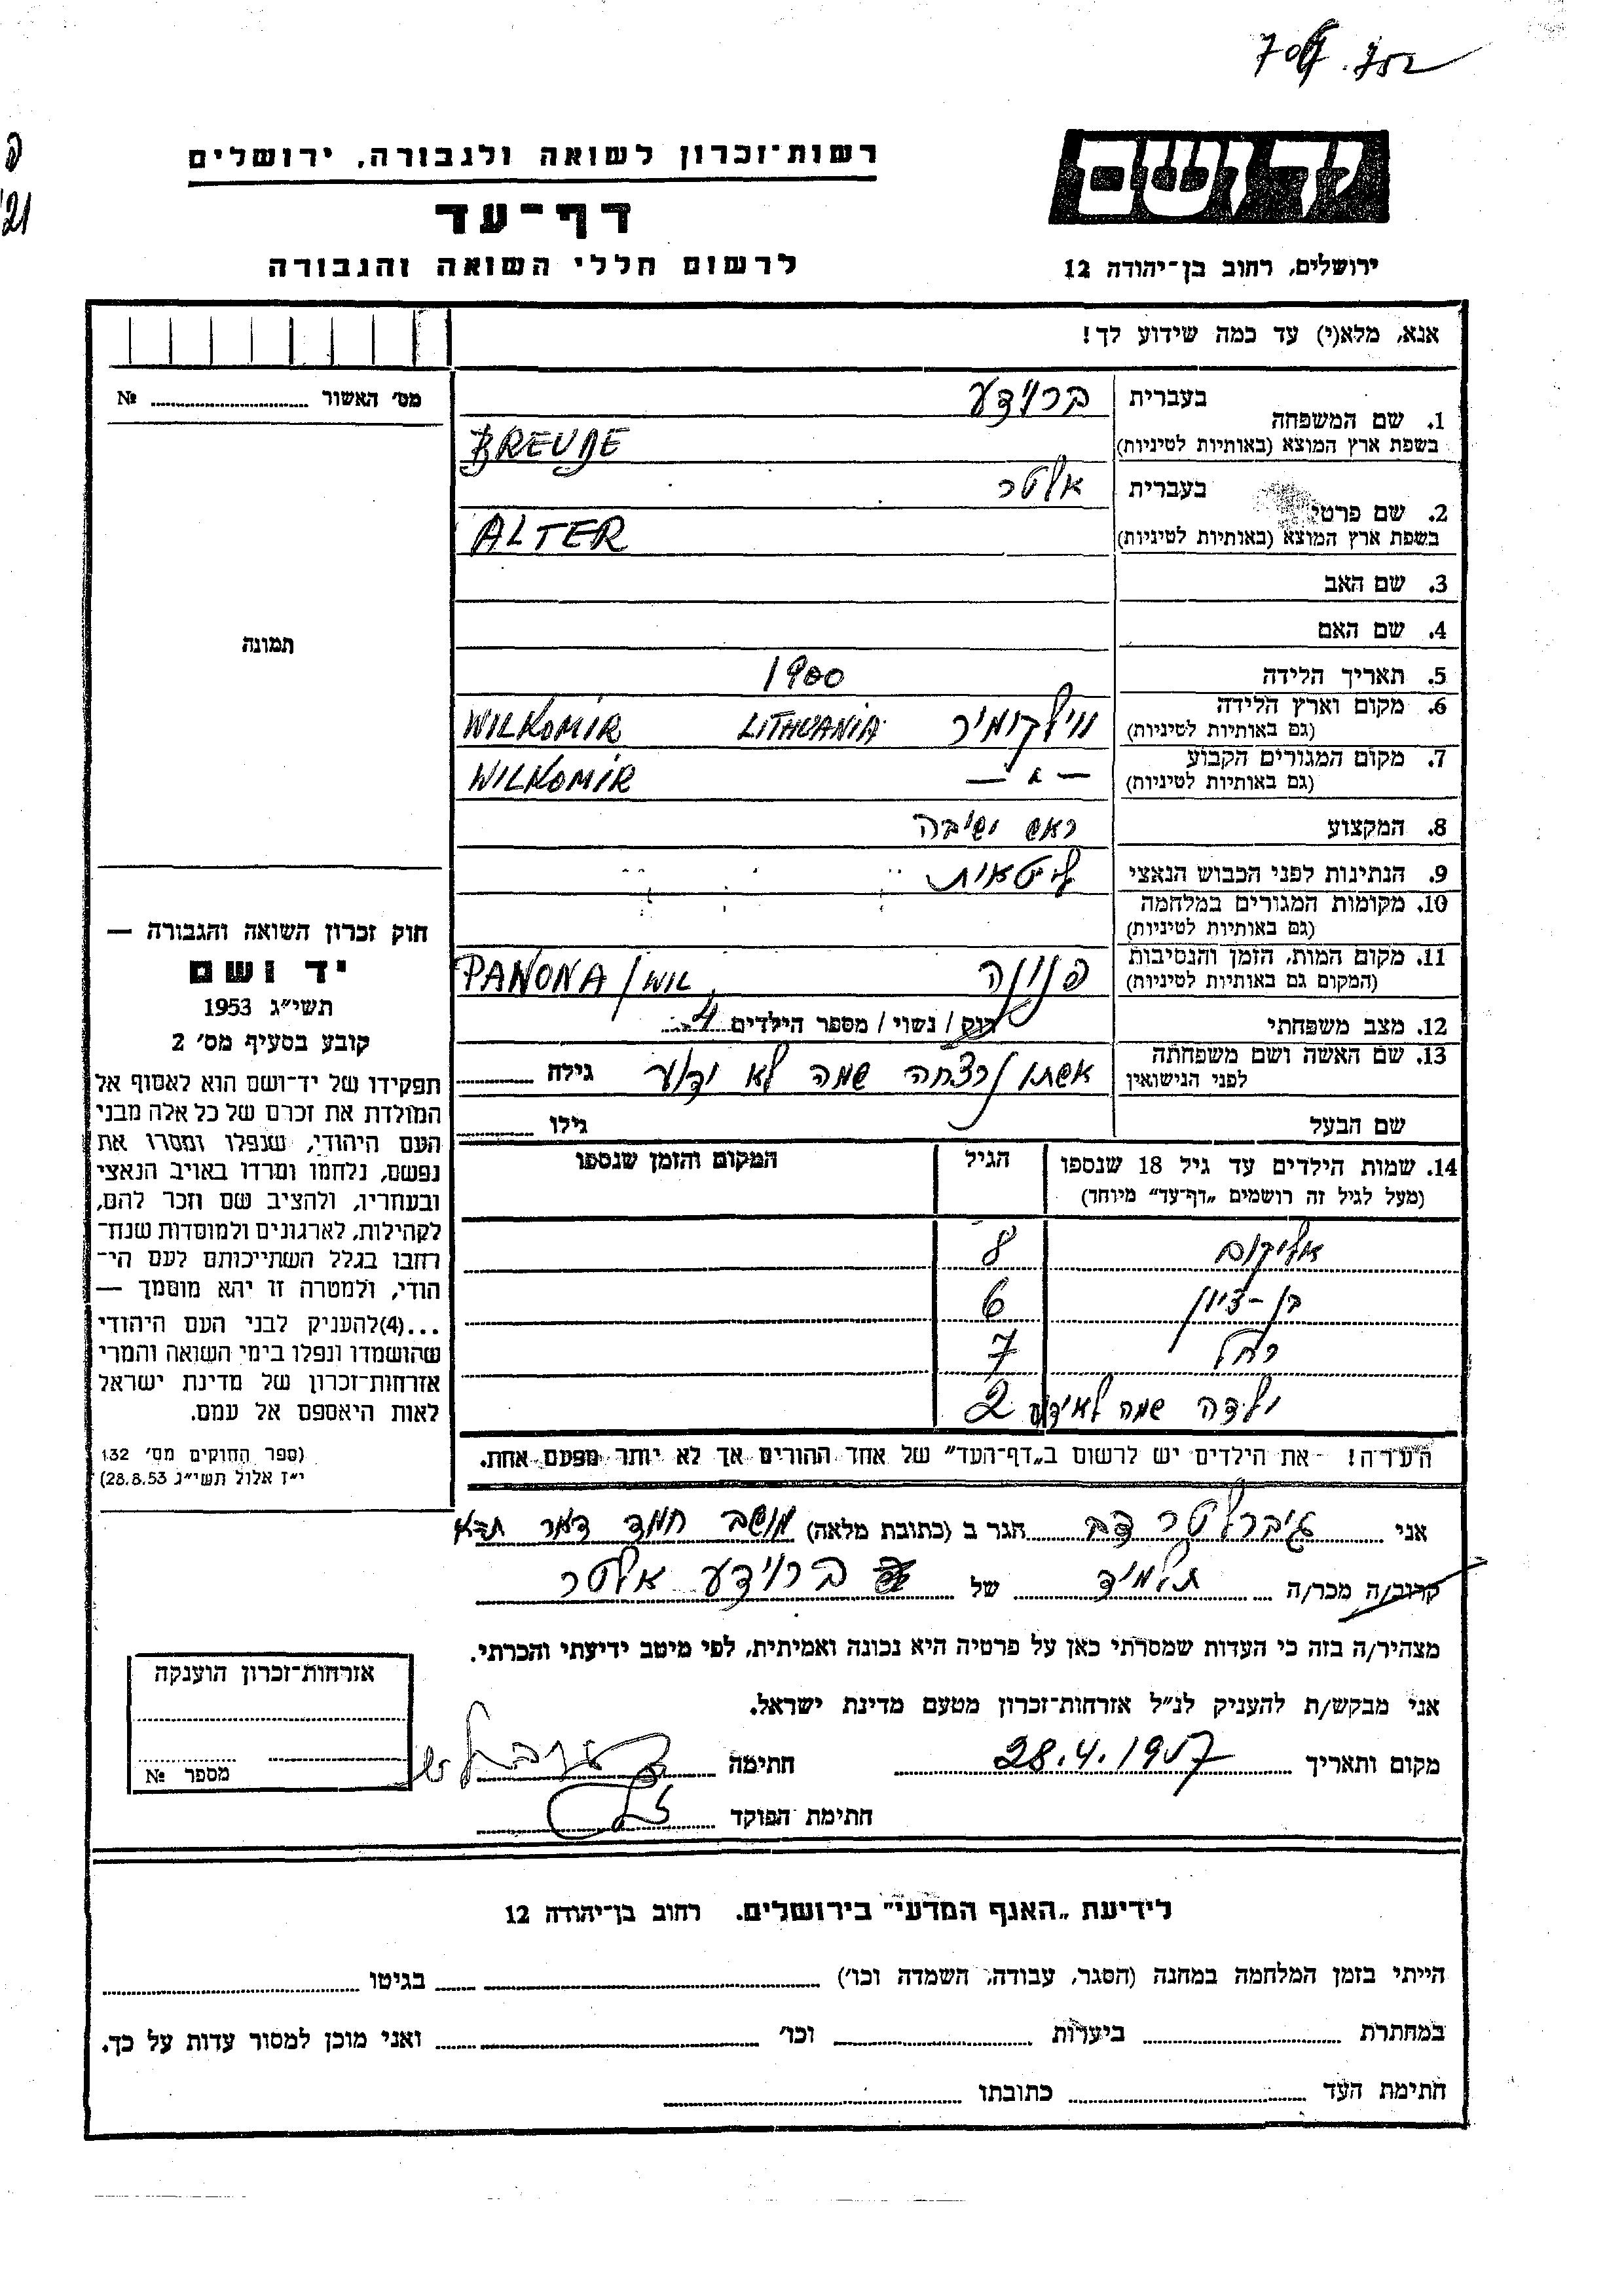 רשות־זכרון לשואה ולגבורה, ירושלים
דף־עד
לרשום חללי השואה והגבורה
ידושם
ירושלים, רחוב בן־יהודה 12
אנא, מלא(י) עד כמה שידוע לך!
מס' האשור № 
1. שם המשפחה
בעברית ברוידע
בשפת ארץ המוצא (באותיות לטיניות) BREUDE
2. שם פרטי
בעברית אלטר
בשפת ארץ המוצא (באותיות לטיניות) ALTER
3. שם האב
4. שם האם
תמונה
5. תאריך הלידה 1900
6. מקום וארץ הלידה
(גם באותיות לטיניות) ווילקומיר LITHUANIA WILKOMIR
7. מקום המגורים הקבוע
(גם באותיות לטיניות) — " — WILKOMIR
8. המקצוע ראש ישיבה
9. הנתינות לפני הכבוש הנאצי ליטאית
10. מקומות המגורים במלחמה
(גם באותיות לטיניות)
11. מקום המות, הזמן והנסיבות
(המקום גם באותיות לטיניות) פנונה PANONA / WIL
12. מצב משפחתי רוק / נשוי / מספר הילדים 4
13. שם האשה ושם משפחתה
לפני הנישואין אשתו נרצחה שמה לא ידוע גילה
שם הבעל גילו
14. שמות הילדים עד גיל 18 שנספו הגיל המקום והזמן שנספו
(מעל לגיל זה רושמים „דף־עד” מיוחד)
אליקום 8
בן-ציון 6
רחל 7
ילדה שמה לא ידוע 2
הערה! ־את הילדים יש לרשום ב„דף־העד” של אחד ההורים אך לא יותר מפעם אחת.
חוק זכרון השואה והגבורה —
יד ושם
תשי״ג 1953
קובע בסעיף מס' 2
תפקידו של יד־ושם הוא לאסוף אל
המולדת את זכרם של כל אלה מבני
העם היהודי, שנפלו ומסרו את
נפשם, נלחמו ומרדו באויב הנאצי
ובעוזריו, ולהציב שם וזכר להם,
לקהילות, לארגונים ולמוסדות שנח־
רחבו בגלל השתייכותם לעם הי־
הודי, ולמטרה זו יהא מוסמך —
...(4)להעניק לבני העם היהודי
שהושמדו ונפלו בימי השואה והמרי
אזרחות־זכרון של מדינת ישראל
לאות היאספם אל עמם.
(ספר החוקים מס' 132
י״ז אלול תשי״ג 28.8.53)
אני גיברלטר דב הגר ב (כתובת מלאה) מושב חמד דאר
קרוב/ה מכר/ה תלמיד של ברוידע אלטר
מצהיר/ה בזה כי העדות שמסרתי כאן על פרטיה היא נכונה ואמיתית, לפי מיטב ידיעתי והכרתי.
אני מבקש/ת להעניק לנ״ל אזרחות־זכרון מטעם מדינת ישראל.
מקום ותאריך 28.4.1957 חתימה
חתימת הפוקד
אזרחות־זכרון הוענקה
מספר №
לידיעת „האגף המדעי” בירושלים. רחוב בן־יהודה 12
הייתי בזמן המלחמה במחנה (הסגר, עבודה, השמדה וכו') בגיטו
במחתרת ביערות וכו' ואני מוכן למסור עדות על כך.
חתימת העד כתובתו